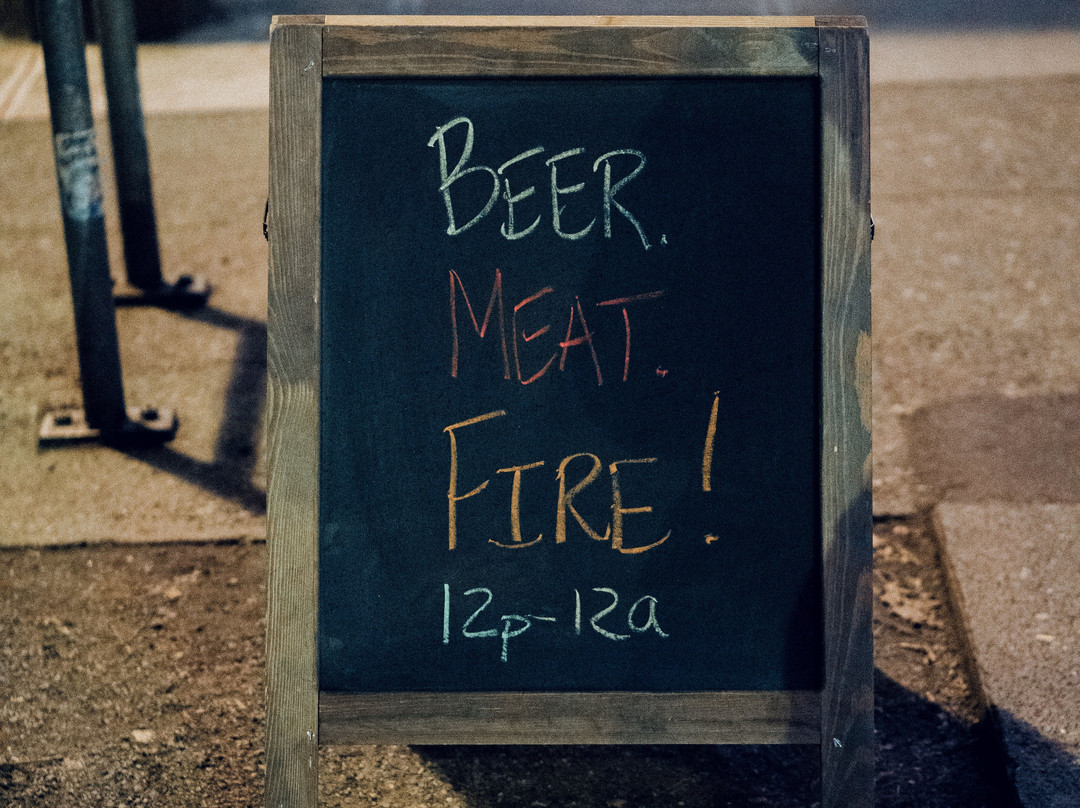 BEER.
MEAT.
FIRE!
12p-12a